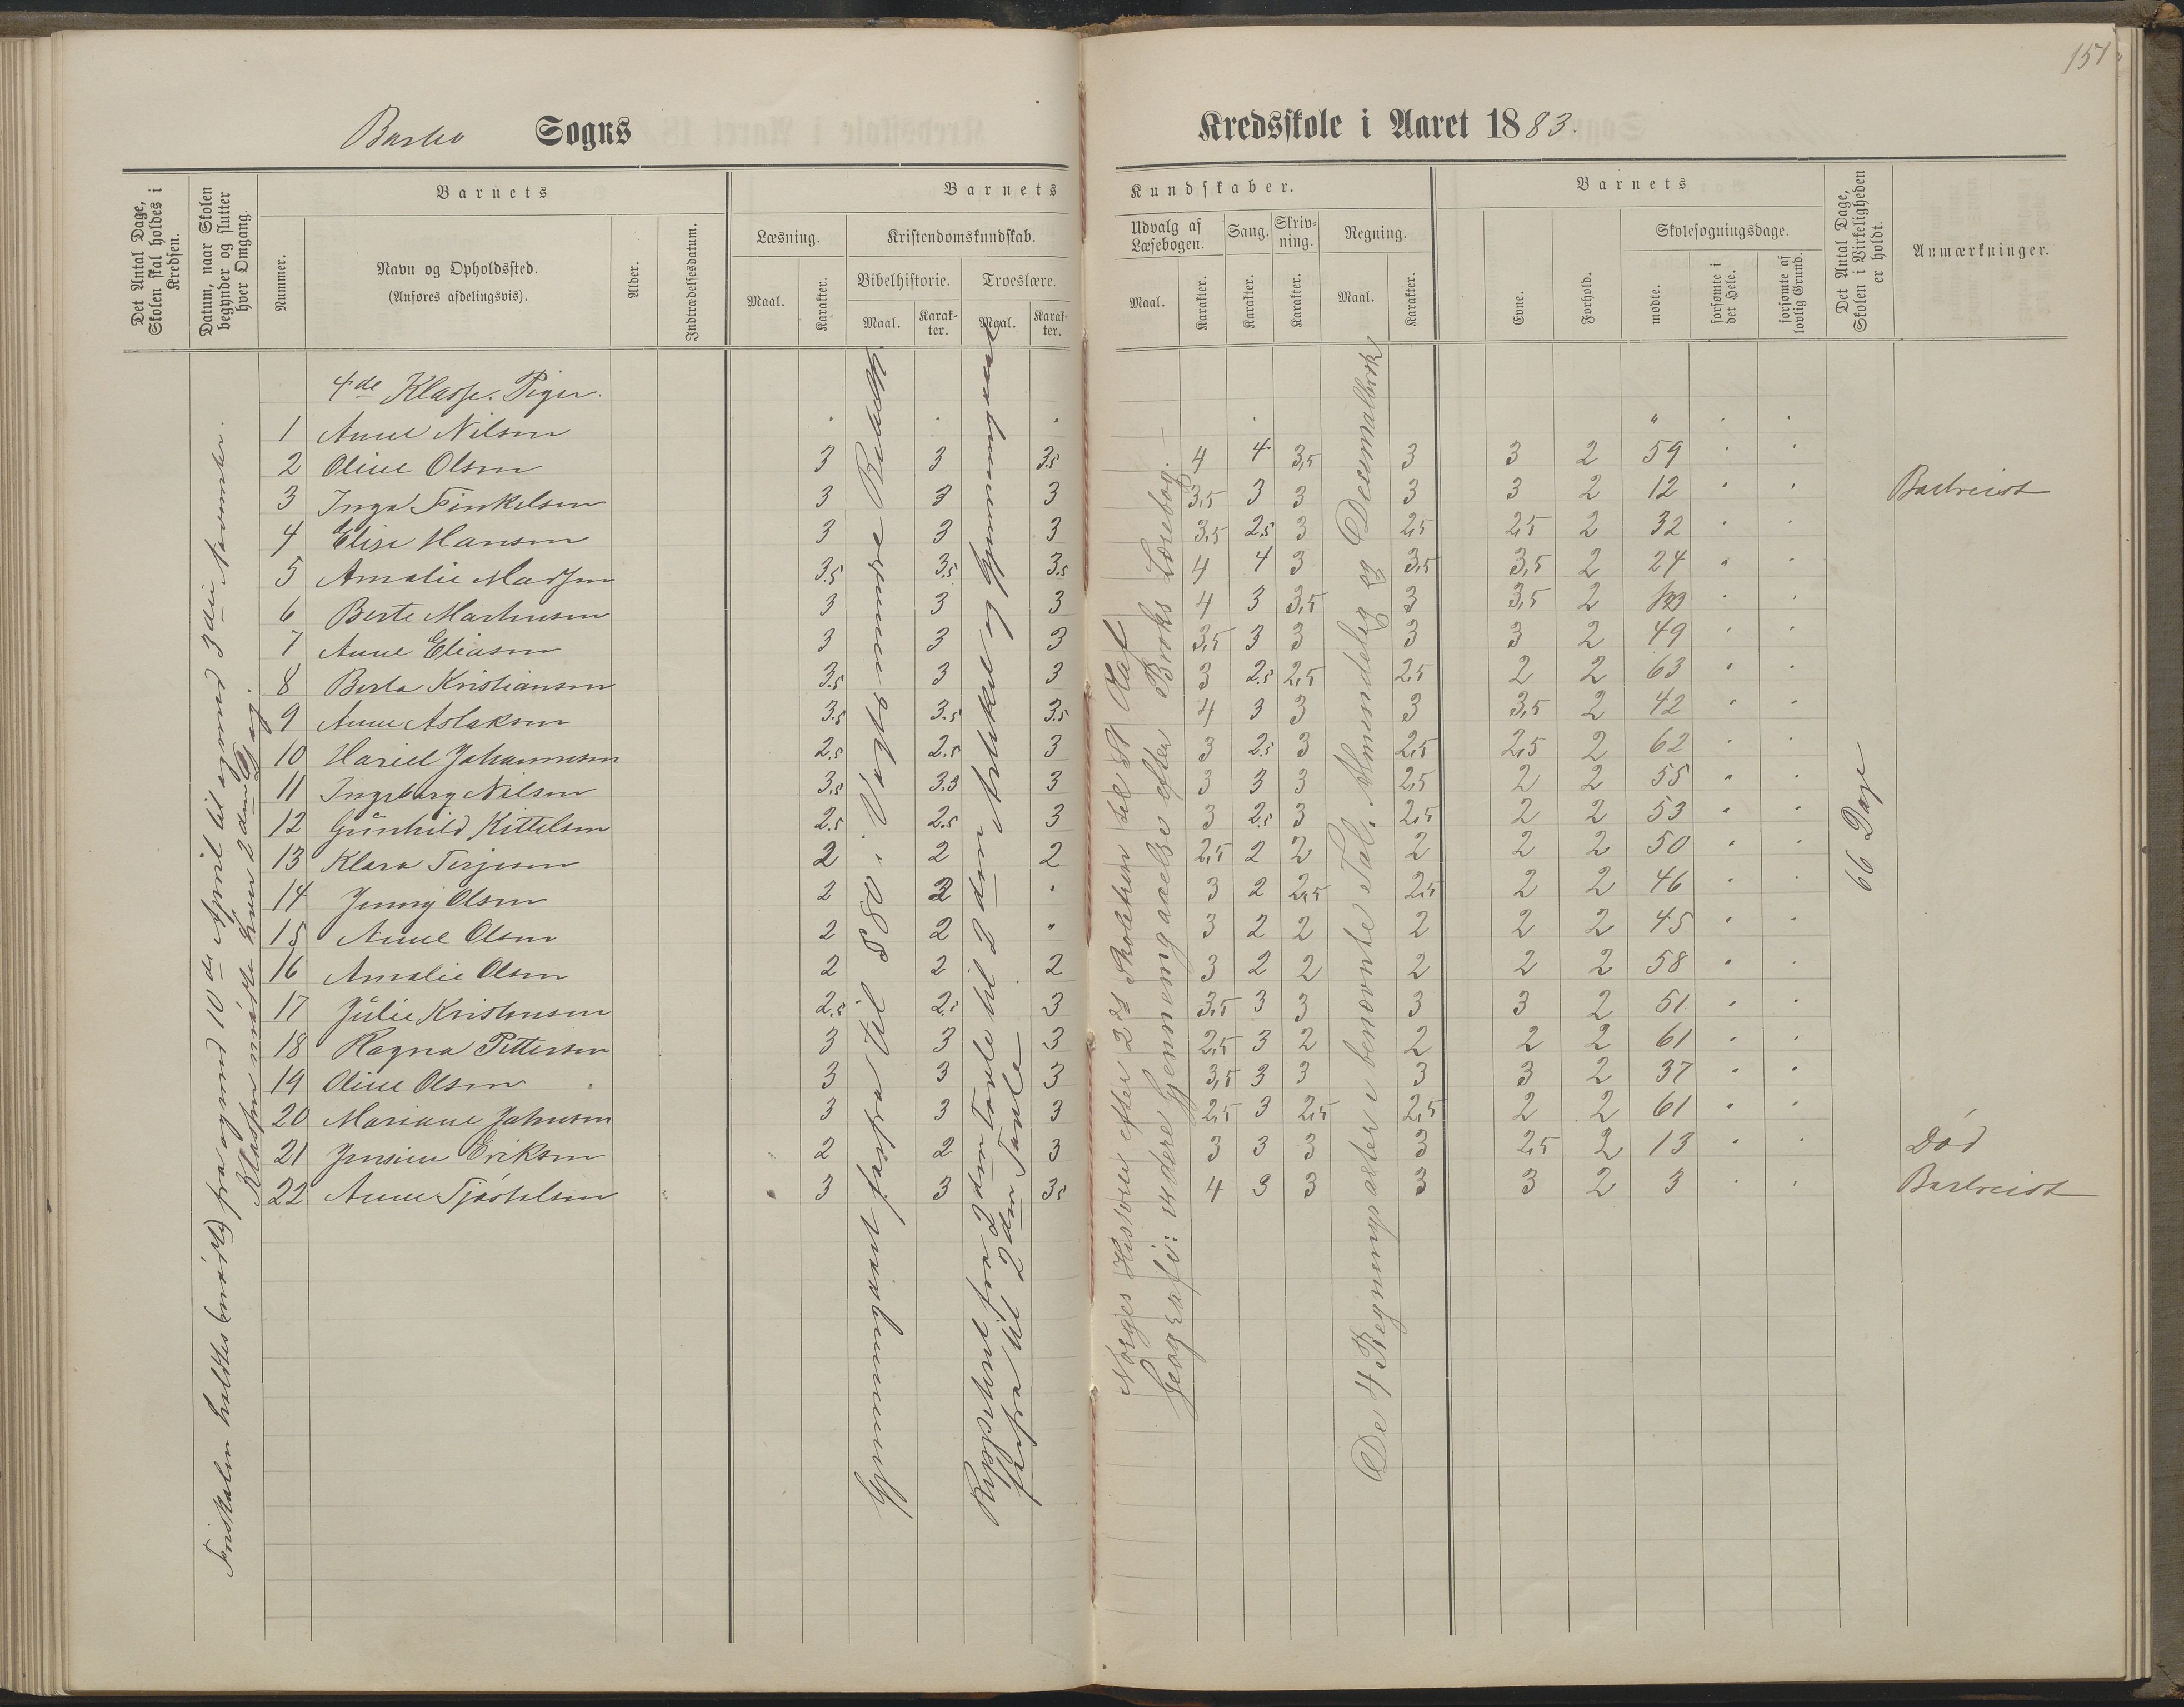 151
Barbo Sogns Kredsskole i Aaret 1883.
Det Antal Dage, Skolen skal holdes i Kredsen.
Datum, naar Skolen begynder og slutter hver Omgang.
Barnets
Nummer.
Navn og Opholdssted.
(Anføres afdelingsvis).
Alder.
Indtrædelsesdatum.
Barnets Kundskaber.
Læsning.
Maal.
Karakter.
Kristendomskundskab.
Bibelhistorie.
Maal.
Karakter.
Troeslære.
Maal.
Karakter.
Udvalg af Læsebogen.
Maal.
Karakter.
Sang.
Karakter.
Skrivning.
Karakter.
Regning.
Maal.
Karakter.
Barnets
Evne.
Forhold.
Skolesøgningsdage.
mødte.
forsømte i det Hele.
forsømte af lovlig Grund.
Det Antal Dage, Skolen i Virkeligheden er holdt.
Anmærkninger.
4de Klasse. Piger.
1 Anne Nilsen
2 Oline Olsen 3 3 3.5 4 4 3,5 3 3 2 59
3 Inga Finkelsen 3 3 3 3,5 3 3 3 3 2 12 Bortreist
4 Elise Hansen 3 3 3 3,5 2.5 3 2,5 2,5 2 32
5 Amalie Madsen 3.5 3.5 3.5 4 4 3 3,5 3,5 2 24
6 Berte Markusen 3 3 3 4 3 3,5 3 3,5 2
7 Anne Eliasen 3 3 3 3,5 3 3 3 3 2 49
8 Berta Kristiansen 3.5 3 3 3 2.5 2,5 2,5 2 2 63
9 Anne Aslaksen 3.5 3.5 3.5 4 3 3 3 3,5 2 42
10 Johannesen 2.5 2.5 3 3 2.5 3 2,5 2,5 2 62
11 Ingeborg Nilsen 3.5 3.5 3 3 3 3 2,5 2 2 55
12 Gunhild Kittelsen 2.5 2.5 3 3 2.5 3 2,5 2 2 53
13 Klara Terjesen 2 2 2 2,5 2 2 2 2 2 50
14 Jenny Olsen 2 2 3 2 2,5 2,5 2 2 46
15 Anne Olsen 2 2 " 3 2 2 2 2 2 45
16 Amalie Olsen 2 2 2 3 2 2 2 2 2 58
17 Julie Kristensen 2.5 2.5 3 3,5 3 3 3 3 2 51
18 Ragna Pettersen 3 3 3 2,5 3 2 2 2 2 61
19 Oline Olsen 3 3 3 3,5 3 3 3 3 2 37
20 Mariane Johnsen 3 3 3 2,5 3 2,5 2,5 2 2 61
21 Jensine Eriksen 2 2 3 3 3 3 3 2,5 2 13 Død
22 Anne Tjøstelsen 3 3 3.5 4 3 3 3 3 2 3 Bortreist
holdtes (mødt) fra og med 10de April til og med 3die November.
Klassen mødte hver 2den Gang.
Gjennemgaaet forfra til 88. i Vogts svenne Bibelh.
Reppeteret fra 2den Tavle til 2den Artikel og Gjennemgaaet
forfra til 2den Tavle
Norges Historie efter 2det Skoletrin til St Olaf
Geografi: videre Gjennemgaaelse efter Broks Lærebog.
De 4 Regningsarter i benævnte Tal. Almindelig og Decemalbrøk
66 Dage